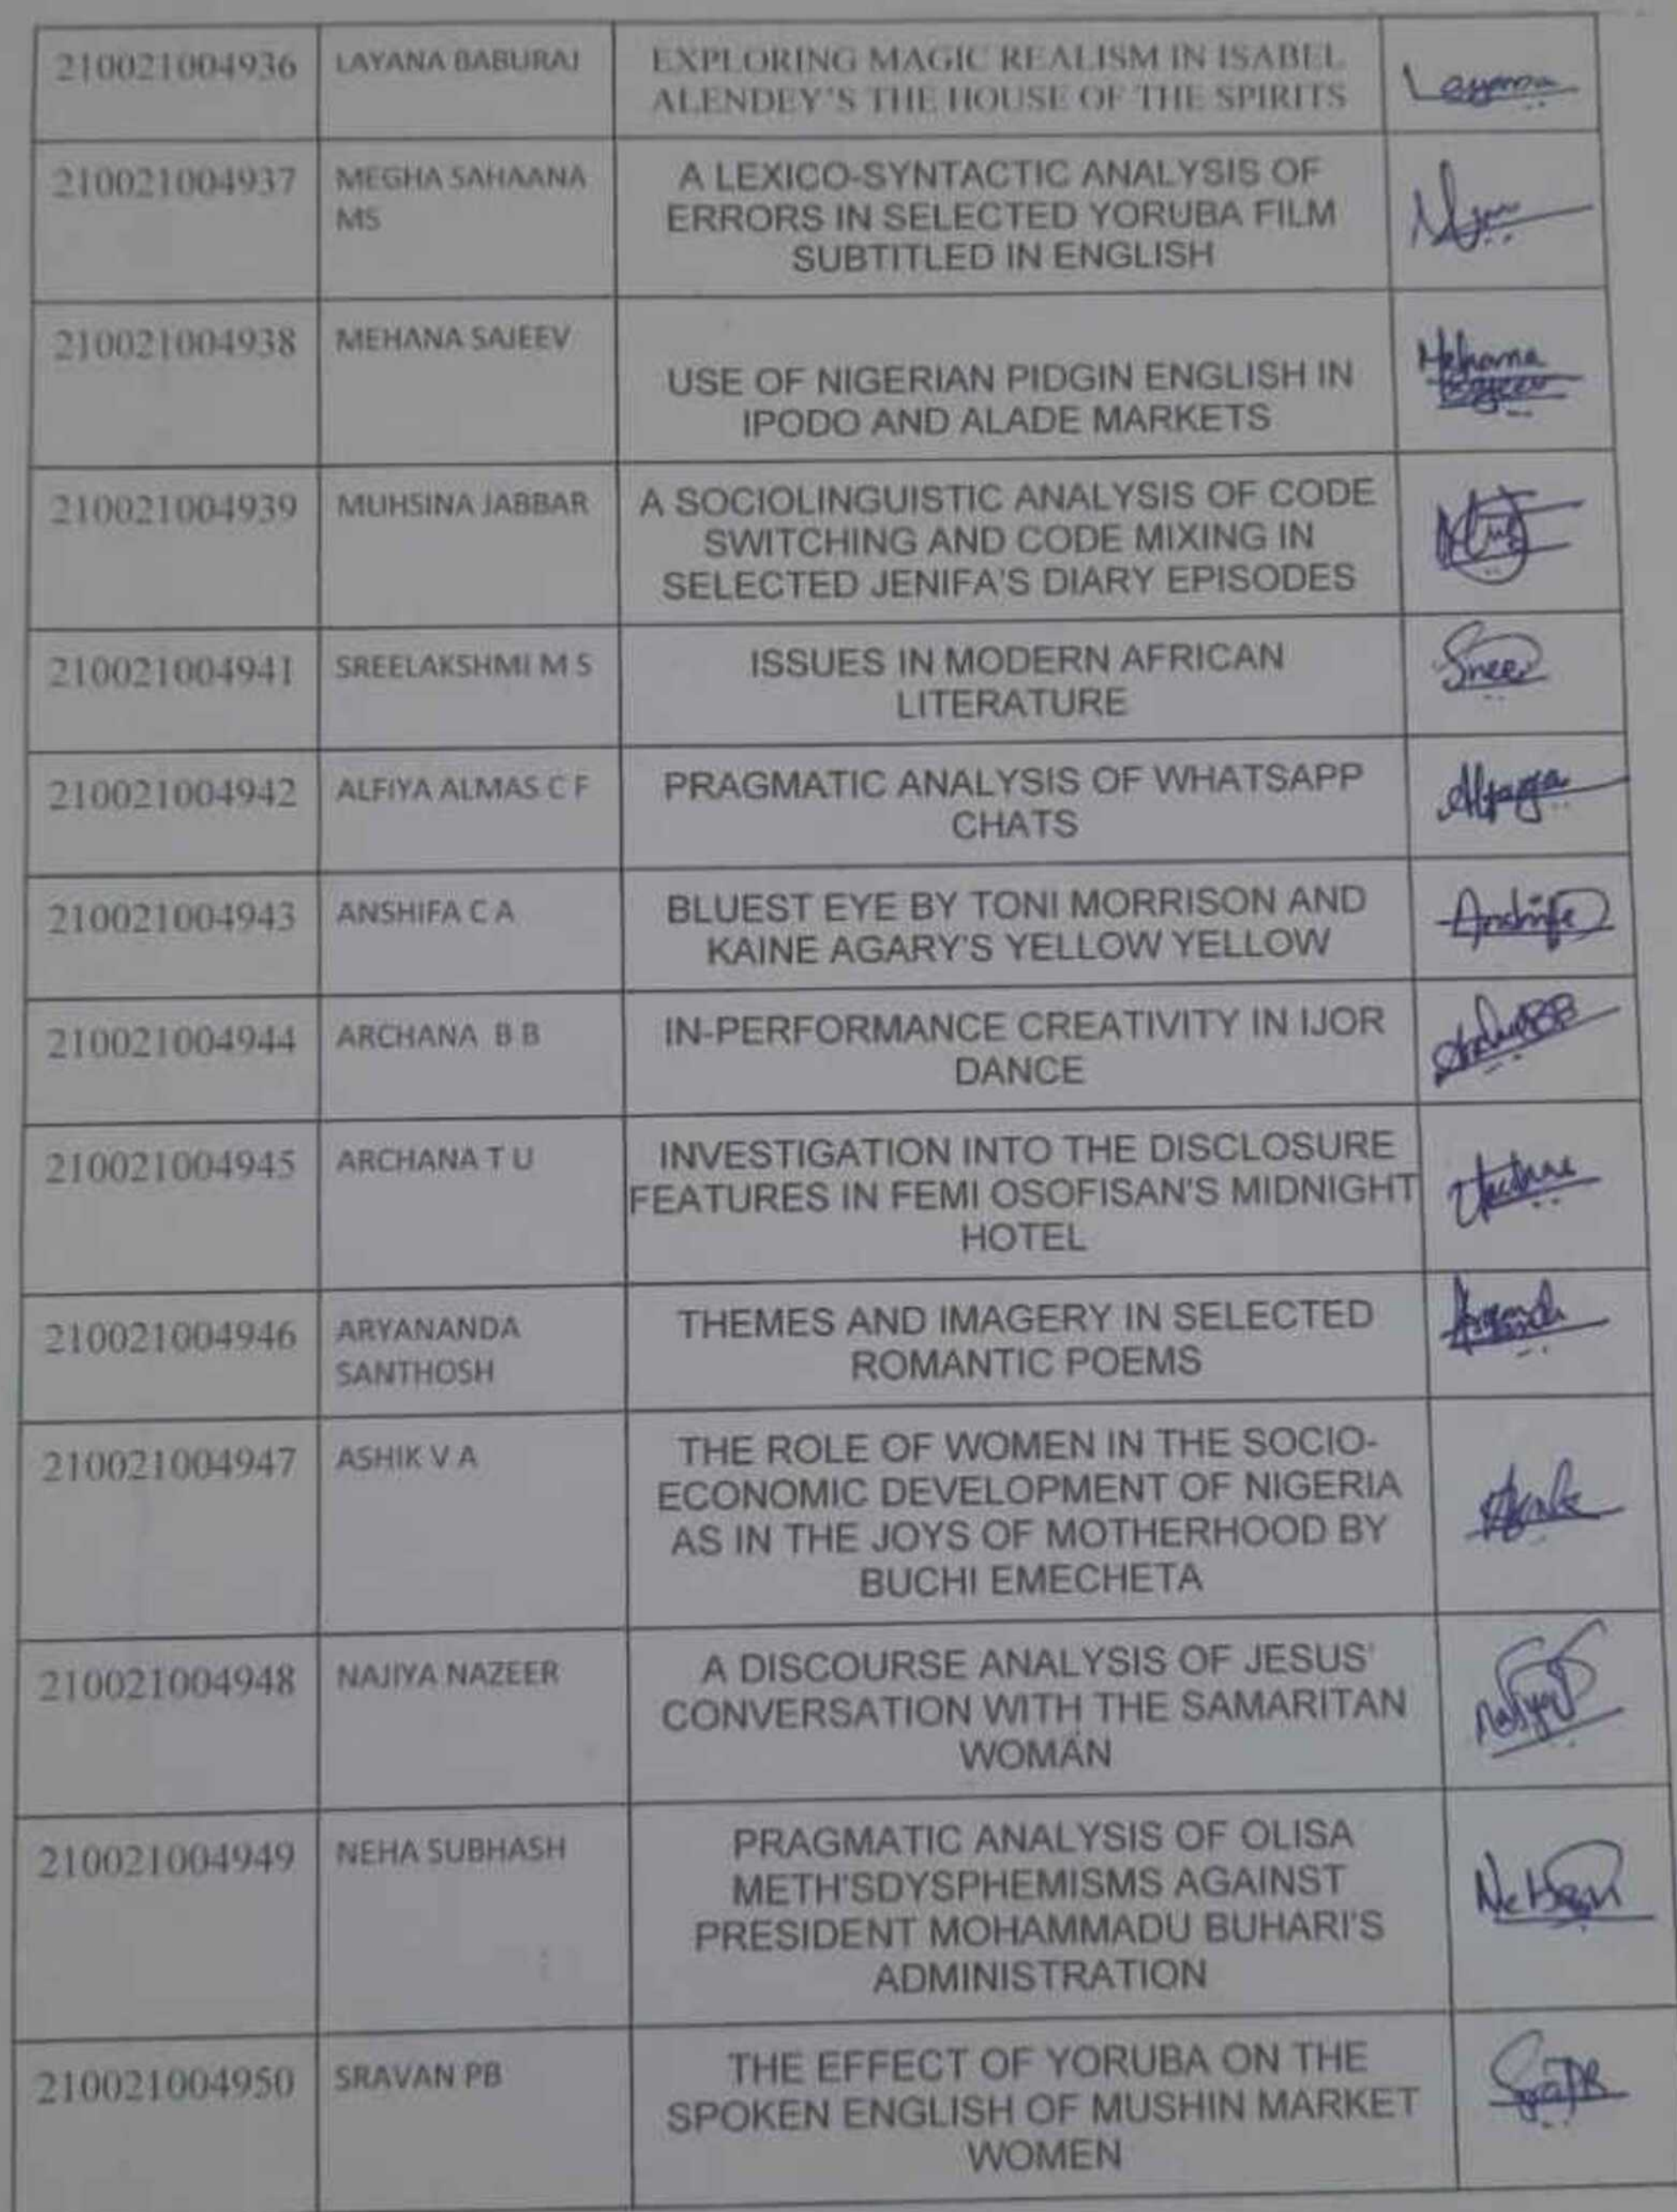 210021004936
LAYANA BABURAJ
EXPLORING MAGIC REALISM IN ISABEL
ALENDEY'S THE HOUSE OF THE SPIRITS
Layana
210021004937
MEGHA SAHAANA
MS
A LEXICO-SYNTACTIC ANALYSIS OF
ERRORS IN SELECTED YORUBA FILM
SUBTITLED IN ENGLISH
210021004938
MEHANA SAJEEV
USE OF NIGERIAN PIDGIN ENGLISH IN
IPODO AND ALADE MARKETS
Mehana
Sajeev
210021004939
MUHSINA JABBAR
A SOCIOLINGUISTIC ANALYSIS OF CODE
SWITCHING AND CODE MIXING IN
SELECTED JENIFA'S DIARY EPISODES
210021004941
SREELAKSHMI M S
ISSUES IN MODERN AFRICAN
LITERATURE
Sree
210021004942
ALFIYA ALMAS C F
PRAGMATIC ANALYSIS OF WHATSAPP
CHATS
210021004943
ANSHIFA C A
BLUEST EYE BY TONI MORRISON AND
KAINE AGARY'S YELLOW YELLOW
Anshifa
210021004944
ARCHANA B B
IN-PERFORMANCE CREATIVITY IN IJOR
DANCE
210021004945
ARCHANA T U
INVESTIGATION INTO THE DISCLOSURE
FEATURES IN FEMI OSOFISAN'S MIDNIGHT
HOTEL
210021004946
ARYANANDA
SANTHOSH
THEMES AND IMAGERY IN SELECTED
ROMANTIC POEMS
210021004947
ASHIK V A
THE ROLE OF WOMEN IN THE SOCIO-
ECONOMIC DEVELOPMENT OF NIGERIA
AS IN THE JOYS OF MOTHERHOOD BY
BUCHI EMECHETA
210021004948
NAJIYA NAZEER
A DISCOURSE ANALYSIS OF JESUS'
CONVERSATION WITH THE SAMARITAN
WOMAN
210021004949
NEHA SUBHASH
PRAGMATIC ANALYSIS OF OLISA
METH'SDYSPHEMISMS AGAINST
PRESIDENT MOHAMMADU BUHARI'S
ADMINISTRATION
210021004950
SRAVAN PB
THE EFFECT OF YORUBA ON THE
SPOKEN ENGLISH OF MUSHIN MARKET
WOMEN